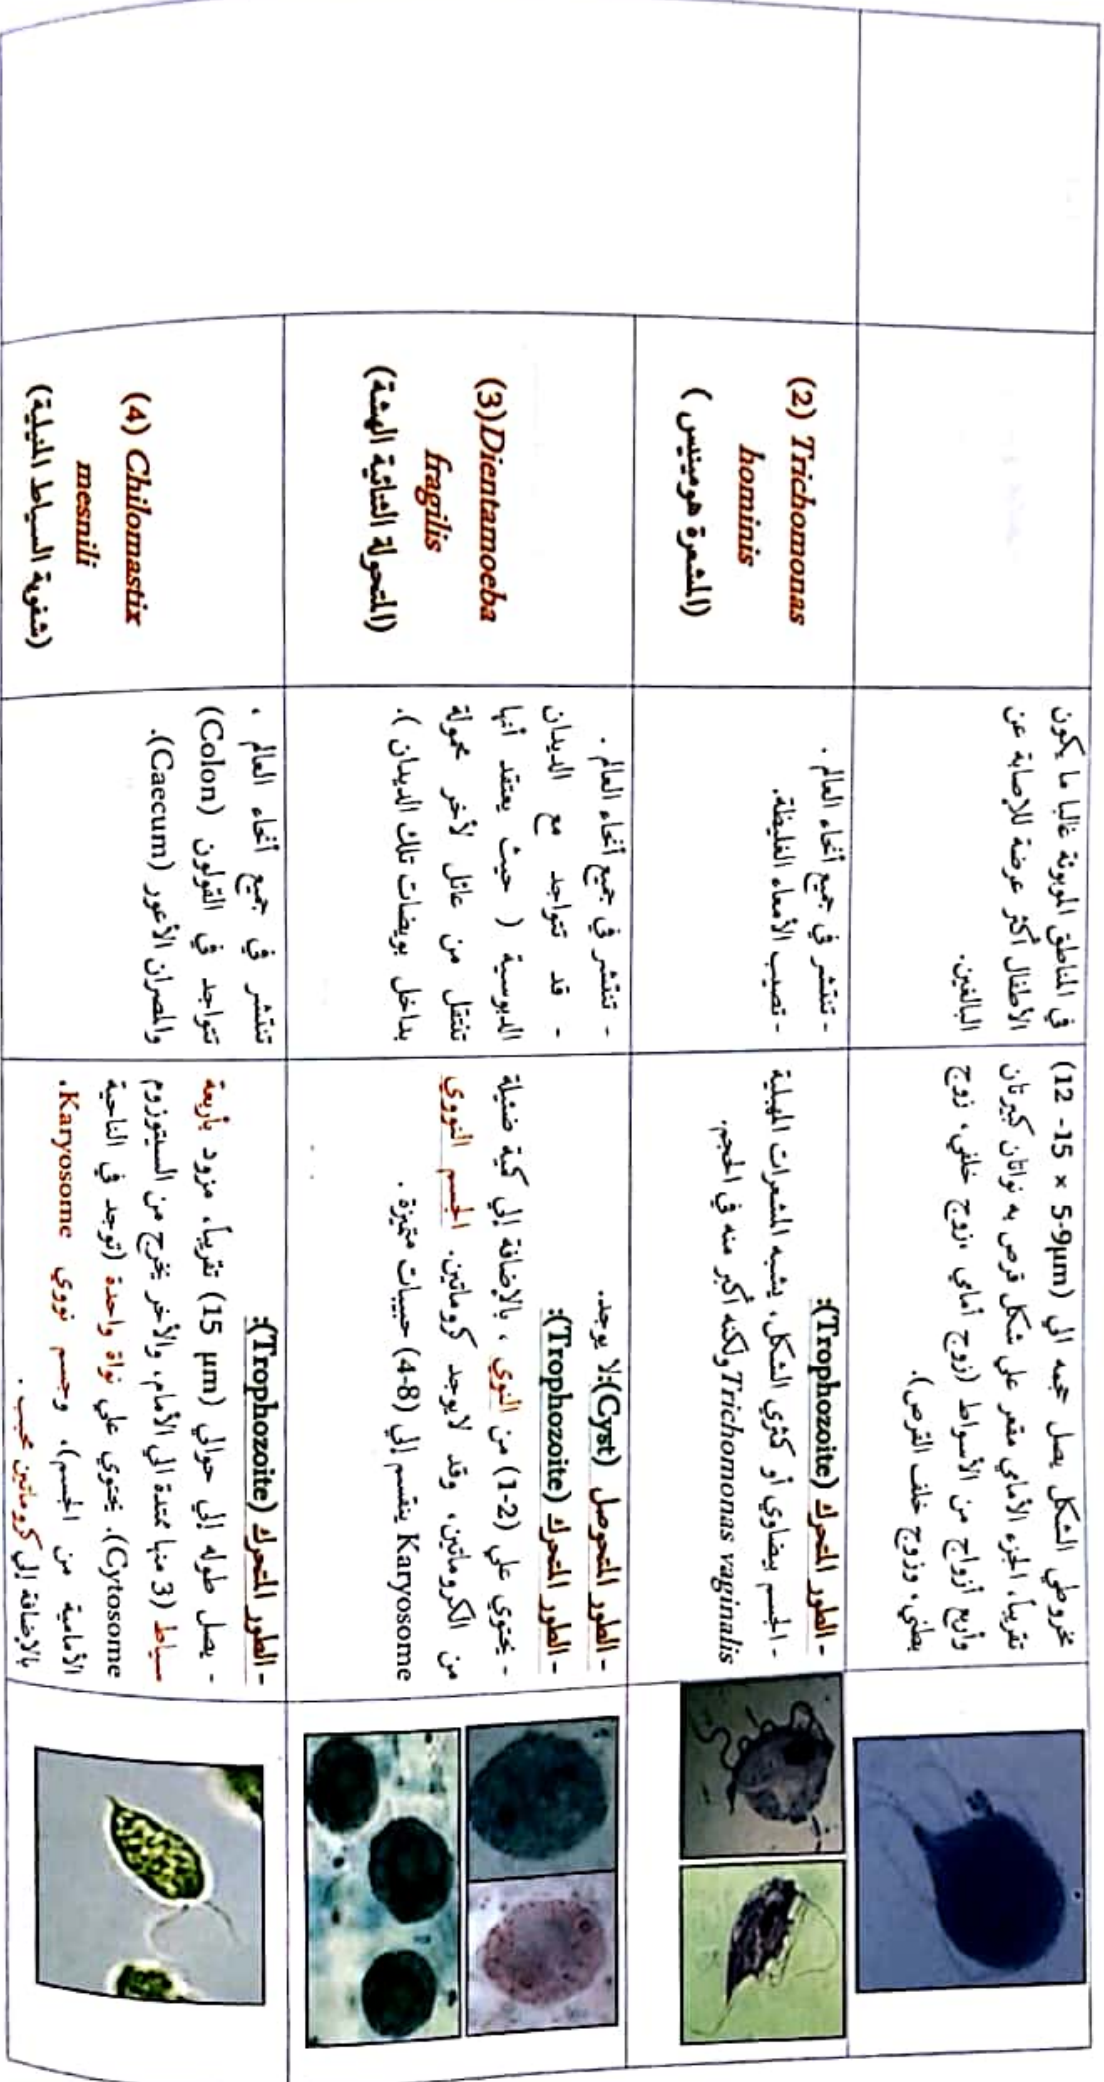 في المناطق الموبوئة غالبا ما يكون
الأطفال أكثر عرضة للإصابة عن
البالغين.
مخروطي الشكل يصل حجمه الي (12 -15 × 5-9µm)
تقريباً، الجزء الأمامي مقعر علي شكل قرص به نواتان كبيرتان
وأربع أزواج من الأسواط (زوج أمامي ،زوج خلفي، زوج
بطني، وزوج خلف القرص).
(2) Trichomonas
hominis
(المشعرة هومينيس )
- تنتشر في جميع أنحاء العالم .
- تصيب الأمعاء الغليظة.
- الطور المتحرك (Trophozoite):
- الجسم بيضاوي أو كثري الشكل، يشبه المشعرات المهبلية
Trichomonas vaginalis ولكنه أكبر منه في الحجم.
(3)Dientamoeba
fragilis
(المتحولة الثنائية الهشة)
- تنتشر في جميع أنحاء العالم .
- قد تتواجد مع الديدان
الدبوسية ( حيث يعتقد أنها
تنتقل من عائل لأخر محمولة
بداخل بويضات تلك الديدان ).
- الطور المتحوصل (Cyst):لا يوجد.
- الطور المتحرك (Trophozoite):
- يحتوي علي (1-2) من النوي ، بالإضافة إلي كمية ضئيلة
من الكروماتين، وقد لايوجد كروماتين. الجسم النووي
Karyosome ينقسم إلي (4-8) حبيبات متميزة .
(4) Chilomastix
mesnili
(شفوية السياط المنيلية)
تنتشر في جميع أنحاء العالم ،
تتواجد في القولون (Colon)
والمصران الأعور (Caecum).
- الطور المتحرك (Trophozoite):
- يصل طوله إلي حوالي (15 µm) تقريباً، مزود بأربعة
سياط (3 منها ممتدة الي الأمام، والأخر يخرج من السيتوزوم
Cytosome). يحتوي علي نواة واحدة (توجد في الناحية
الأمامية من الجسم)، وجسم نووي Karyosome،
بالإضافة إلي كروماتين محبب .